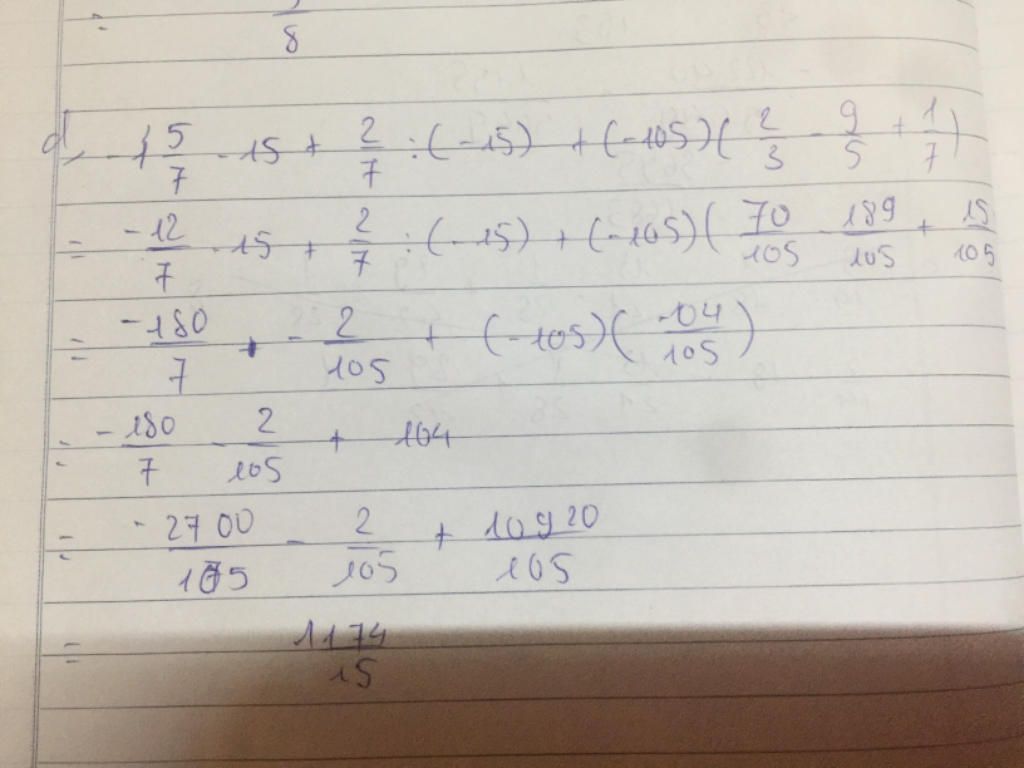 = 8
d, -1 5/7 . 15 + 2/7 : (-15) + (-105) ( 2/3 - 9/5 + 1/7 )
= -12/7 . 15 + 2/7 : (-15) + (-105) ( 70/105 - 189/105 + 15/105
= -180/7 + - 2/105 + (-105) ( -104/105 )
= -180/7 - 2/105 + 104
= -2700/105 - 2/105 + 10920/105
= 1174/15